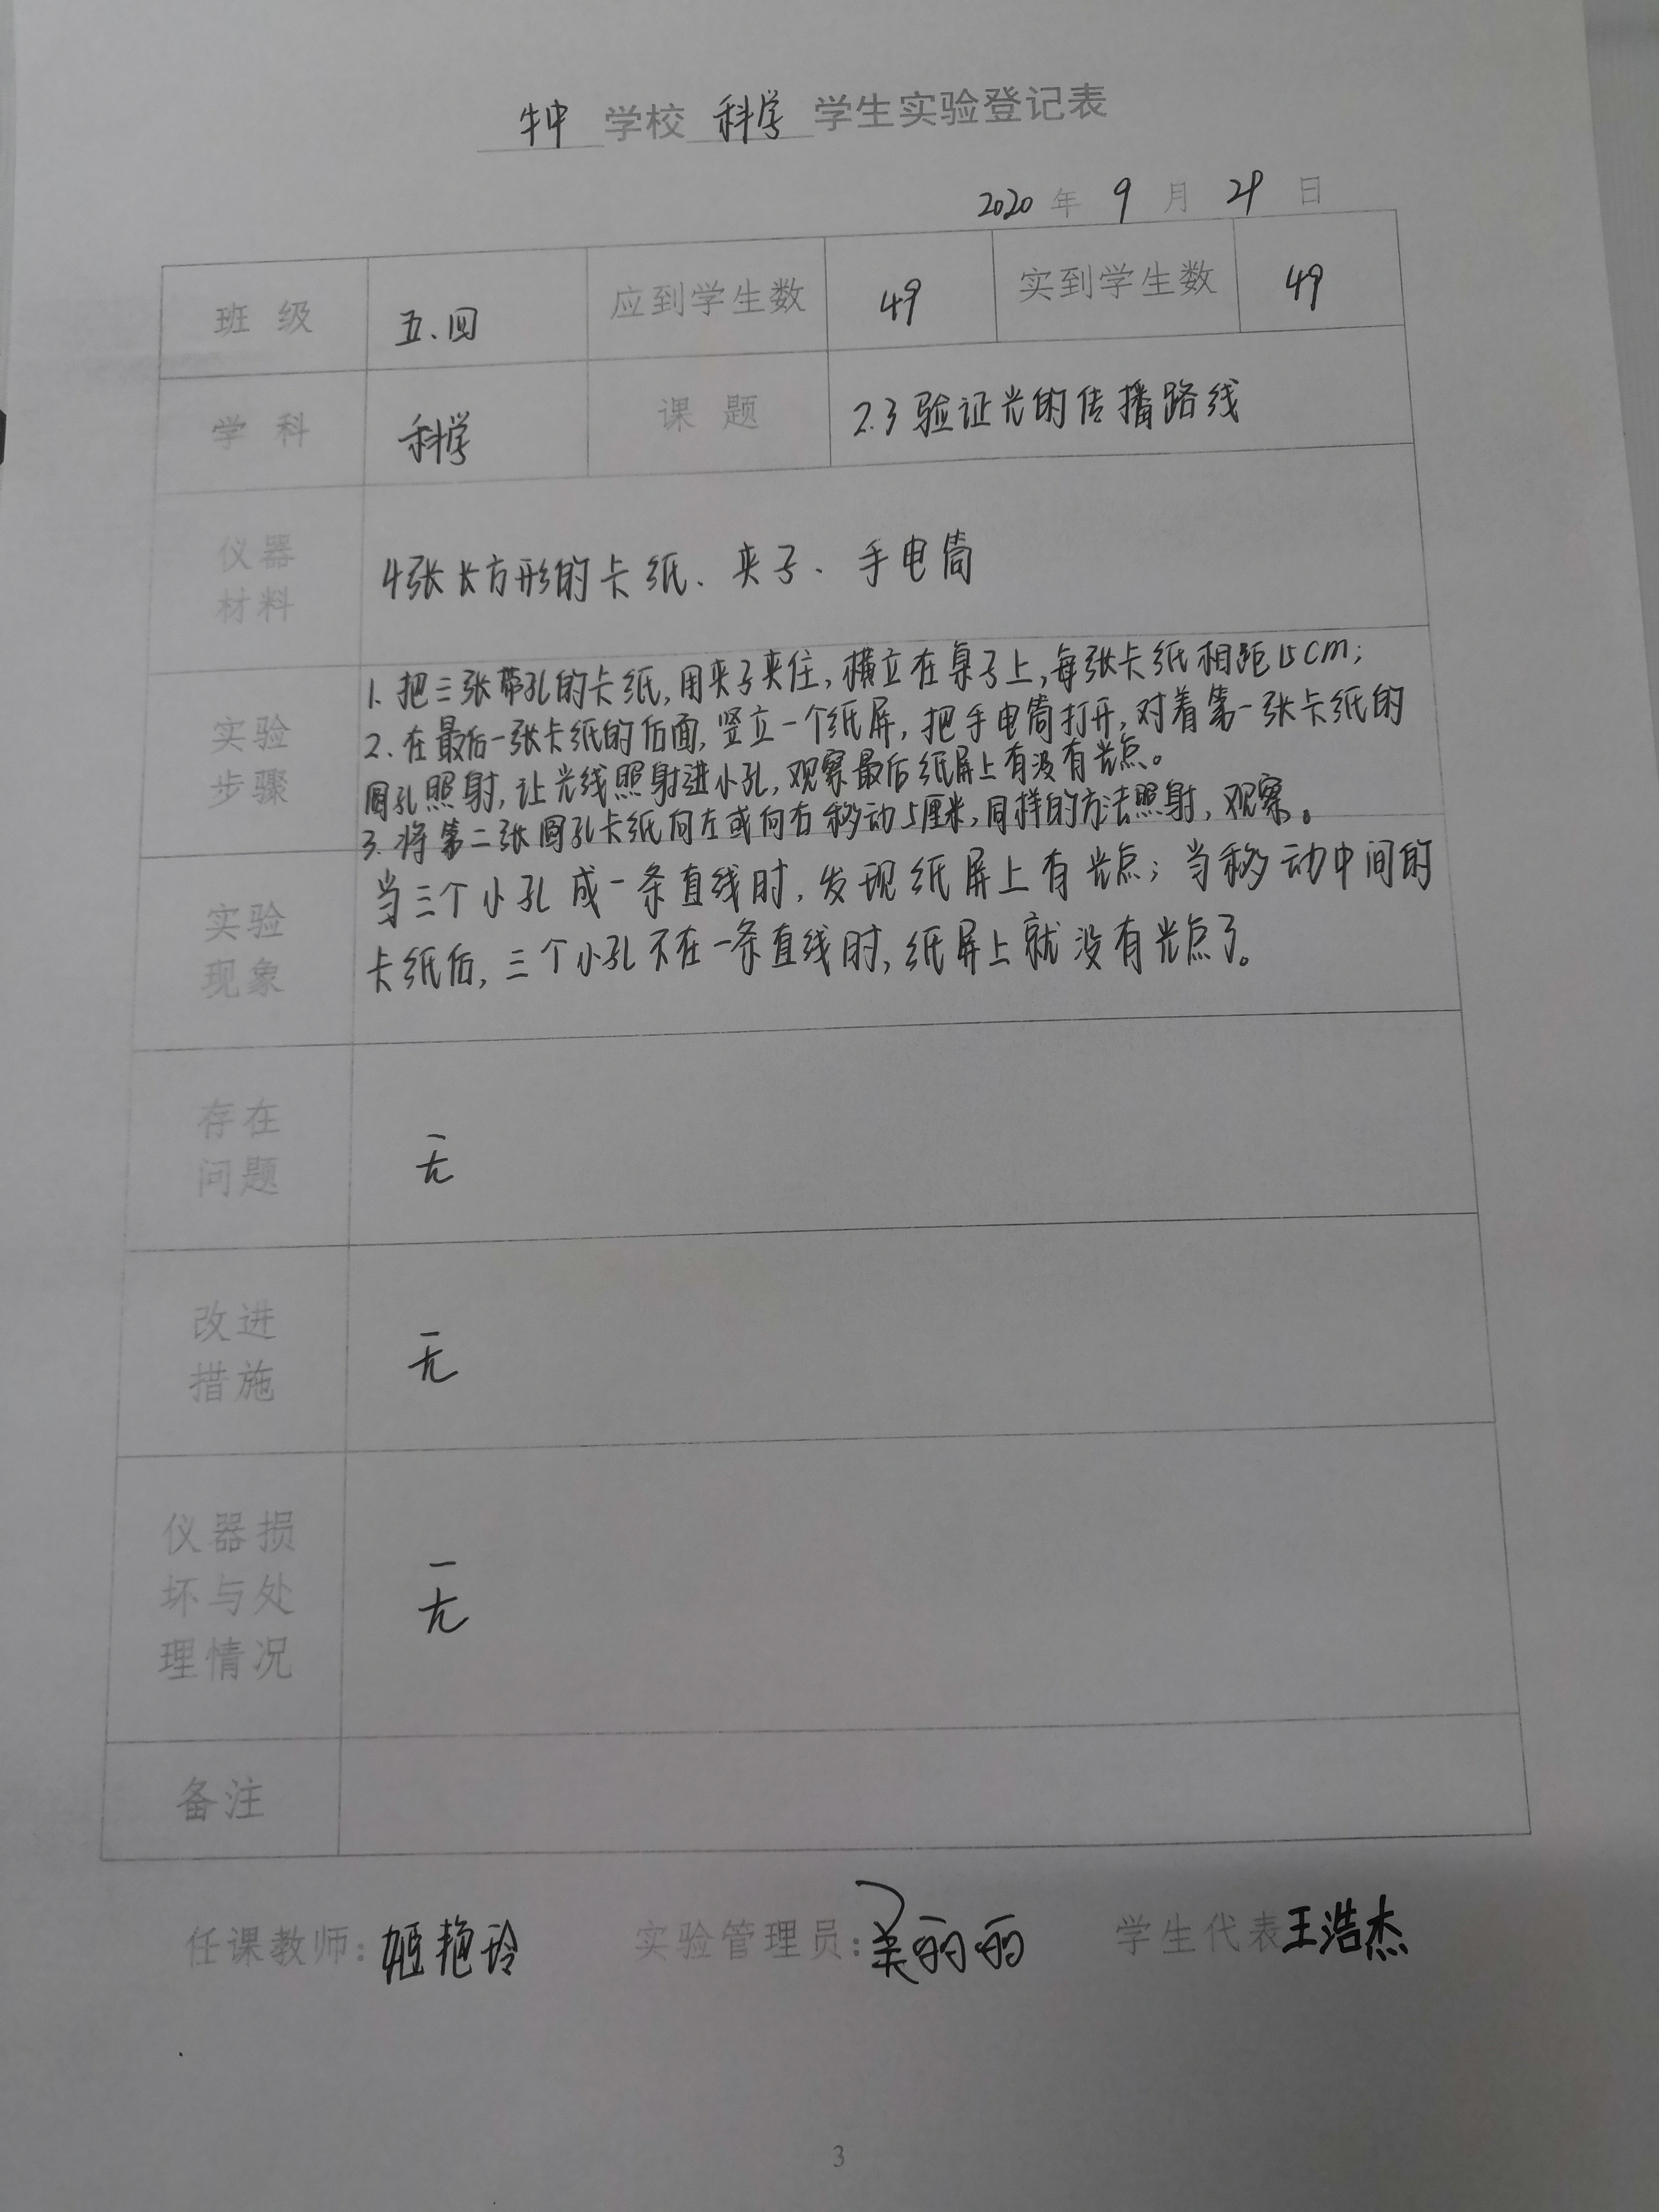 学校 科学 学生实验登记表
2020 年 9 月 29 日
班 级 五.四 应到学生数 49 实到学生数 49
学 科 科学 课 题 2.3 验证光的传播路线
仪器
材料
4张长方形的卡纸、夹子、手电筒
实验
步骤
1. 把三张带孔的卡纸,用夹子夹住,横立在桌子上,每张卡纸相距15cm;
2. 在最后一张卡纸的后面,竖立一个纸屏,把手电筒打开,对着第一张卡纸的
圆孔照射,让光线照射进小孔,观察最后纸屏上有没有光点。
3. 将第二张圆孔卡纸向左或向右移动5厘米,同样的方法照射,观察。
实验
现象
当三个小孔成一条直线时,发现纸屏上有光点;当移动中间的
卡纸后,三个小孔不在一条直线时,纸屏上就没有光点了。
存在
问题
无
改进
措施
无
仪器损
坏与处
理情况
无
备注
任课教师: 姬艳玲 实验管理员: 丽丽 学生代表 王浩杰
3